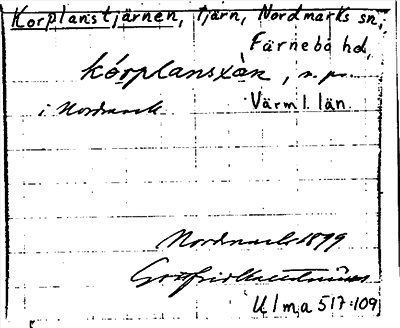 Korplanstjärnen, tjärn, Nordmarks sn,
Färnebo hd,
kórplansxàn, n. pr.
i Nordmark
Värml. län.
Nordmark 1899
Ulma 517:109